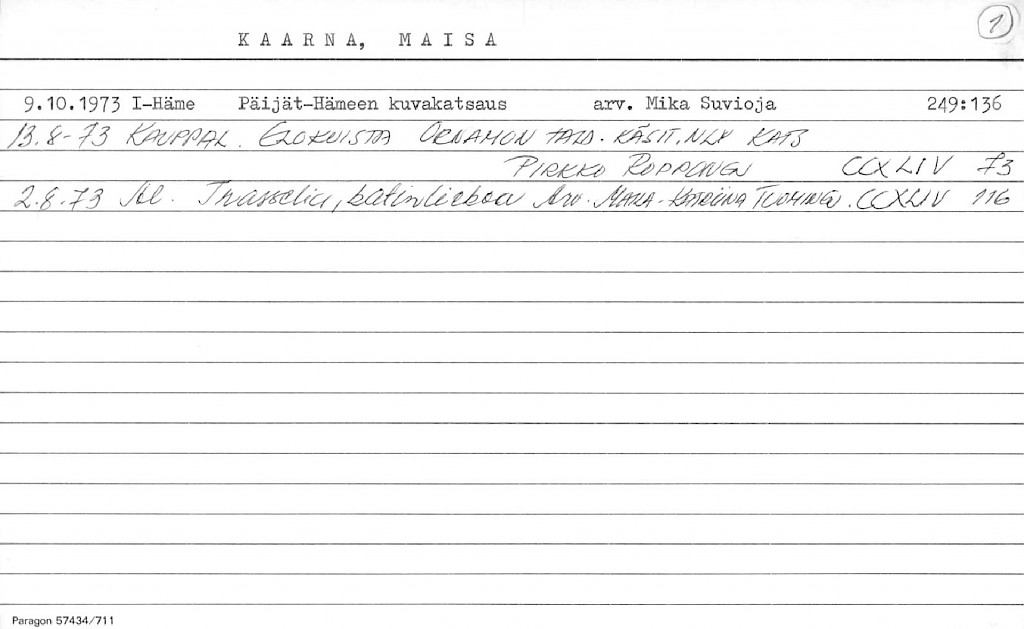 1
KAARNA, MAISA
9.10.1973 I-Häme Päijät-Hämeen kuvakatsaus arv. Mika Suvioja 249:136
13.8-73 KAUPPAL. ELOKUISTA ORNAMON TAID. KÄSIT. KATS
PIRKKO ROPPONEN CCXLIV 73
2.8-73 Al. Trasselia, batiikkia Arv. MAIJA-KATRIINA TUOMINEN. CCXLIV 116
Paragon 57434/711